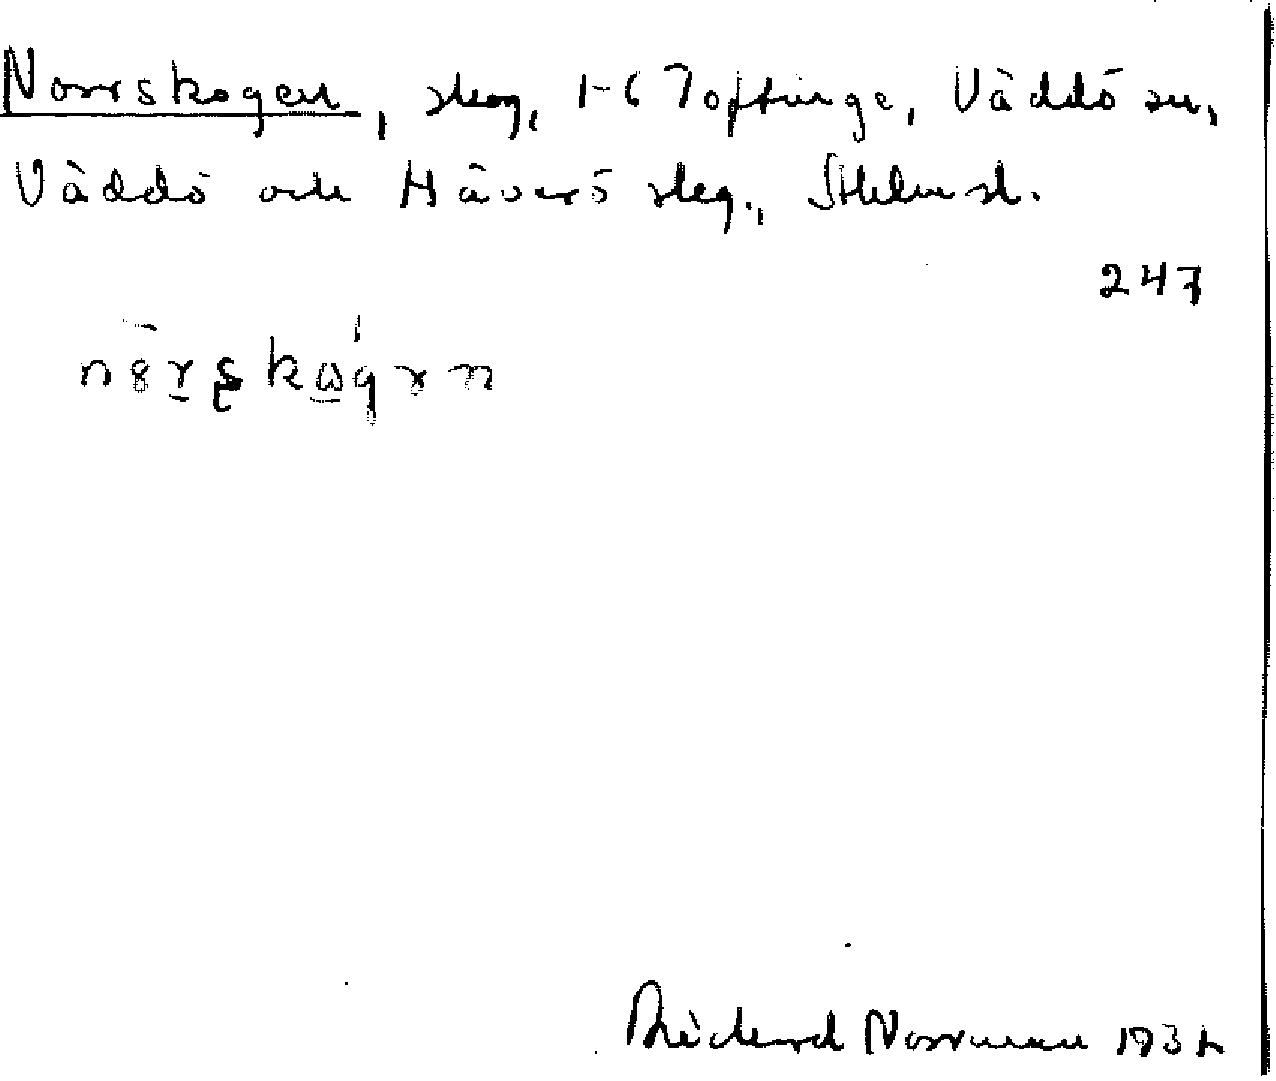 Norrskogen, skog, 1-6 Toftinge, Väddö sn,
Väddö och Häverö skg., Sthlms l.
247
Rickard Norrman 193